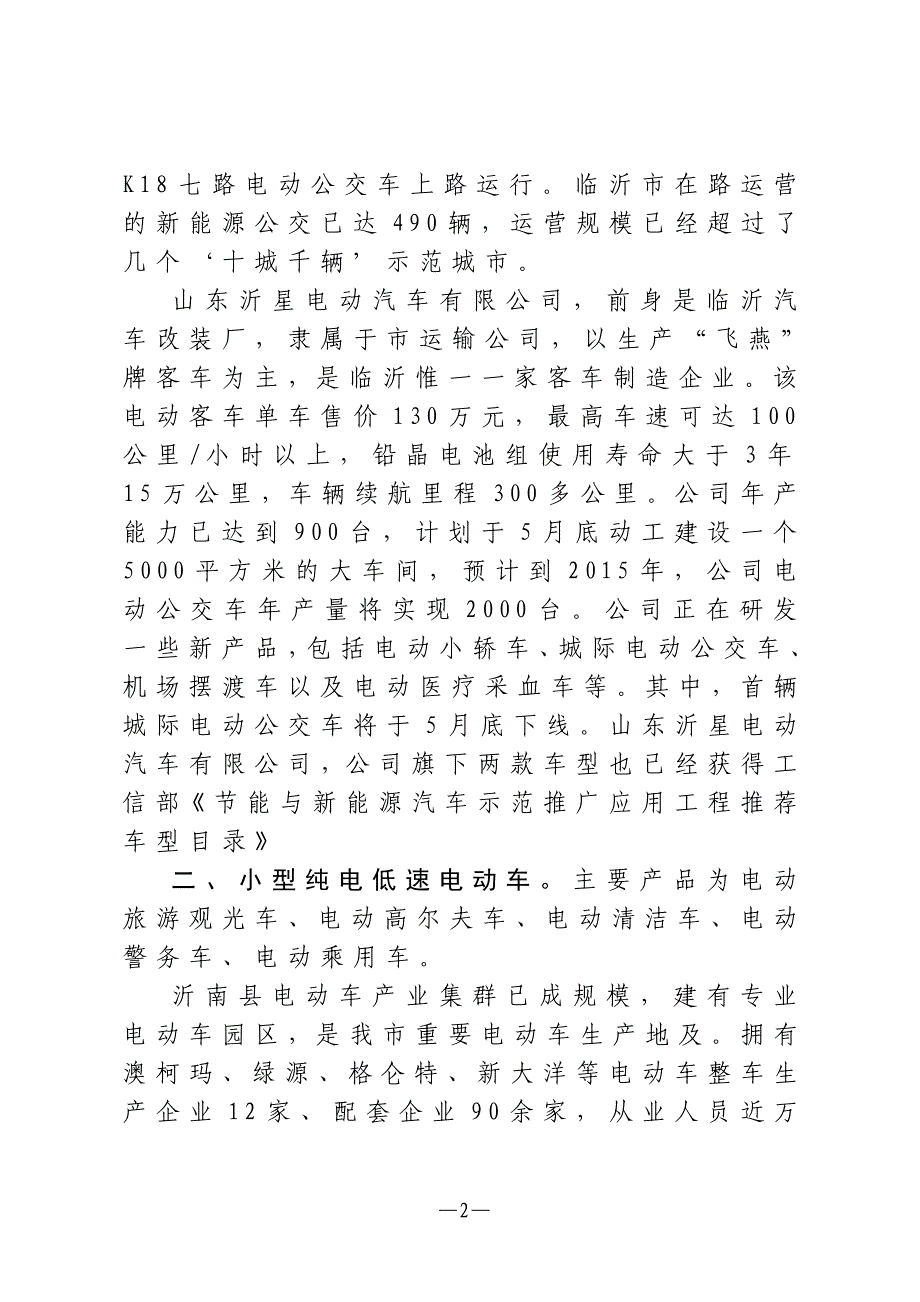 K18七路电动公交车上路运行。临沂市在路运营
的新能源公交已达490辆，运营规模已经超过了
几个‘十城千辆’示范城市。
山东沂星电动汽车有限公司，前身是临沂汽
车改装厂，隶属于市运输公司，以生产“飞燕”
牌客车为主，是临沂惟一一家客车制造企业。该
电动客车单车售价130万元，最高车速可达100
公里/小时以上，铅晶电池组使用寿命大于3年
15万公里，车辆续航里程300多公里。公司年产
能力已达到900台，计划于5月底动工建设一个
5000平方米的大车间，预计到2015年，公司电
动公交车年产量将实现2000台。公司正在研发
一些新产品，包括电动小轿车、城际电动公交车、
机场摆渡车以及电动医疗采血车等。其中，首辆
城际电动公交车将于5月底下线。山东沂星电动
汽车有限公司，公司旗下两款车型也已经获得工
信部《节能与新能源汽车示范推广应用工程推荐
车型目录》
二、小型纯电低速电动车。主要产品为电动
旅游观光车、电动高尔夫车、电动清洁车、电动
警务车、电动乘用车。
沂南县电动车产业集群已成规模，建有专业
电动车园区，是我市重要电动车生产地及。拥有
澳柯玛、绿源、格仑特、新大洋等电动车整车生
产企业12家、配套企业90余家，从业人员近万
—2—